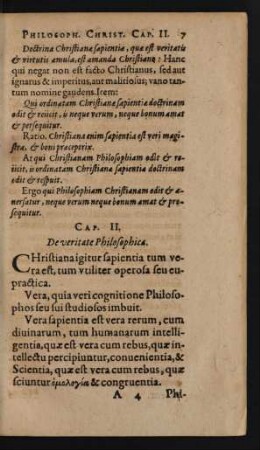 PHILOSOPH. CHRIST. CAP. II. 7
Doctrina Christiana sapientia, quæ est veritatis
& virtutis amula, est amanda Christianæ: Hanc
qui negat non est facto Christianus, sed aut
ignatus & imperitus, aut malitiosus, vano tan-
tum nomine gaudens. Item:
Qui ordinatam Christianæ sapientia doctrinam
odit & reiicit, is neque verum, neque bonum amat
& persequitur.
Ratio. Christiana enim sapientia est veri magi-
stra, & boni praceptrix.
At qui Christianam Philosophiam odit & re-
iicit, is ordinatam Christiana sapientia doctrinam
odit & respuit.
Ergo qui Philosophiam Christianam odit & a-
versatur, neque verum neque bonum amat & pro-
sequitur.
CAP. II,
De veritate Philosophica.
CHristiana igitur sapientia tum ve-
ra est, tum vtiliter operosa seu eu-
practica.
Vera, quia veri cognitione Philoso-
phos seu sui studiosos imbuit.
Vera sapientia est vera rerum, cum
divinarum, tum humanarum intelli-
gentia, quæ est vera cum rebus, quæ in-
tellectu percipiuntur, convenientia, &
Scientia, quæ est vera cum rebus, quæ
sciuntur ὁμολογία & congruentia.
A 4 Phi-